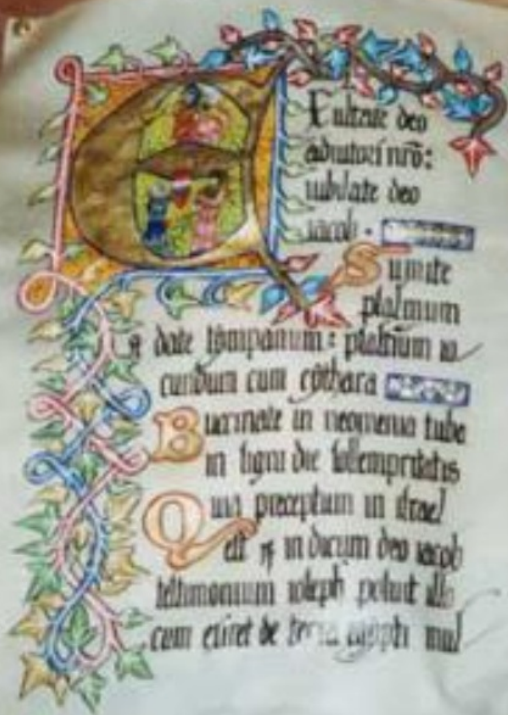 Exultate deo
adiutori nr̄o:
iubilate deo
iacob.
Sumite
psalmum
& date tympanum: psalterium io
cundum cum cythara
Buccinate in neomenia tuba
in signi die sollempnitatis
Quia preceptum in israel
est & iudicium deo iacob
testimonium ioseph posuit illud
cum exiret de terra egypti